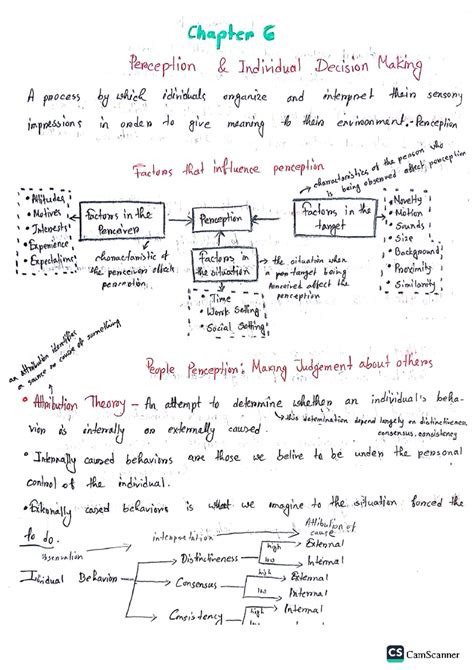 Chapter 6
Perception & Individual Decision Making
A process by which idividuals organize and interpret their sensory
impressions in order to give meaning to their environment. - Perception
Factors that influence perception
characteristics of the person who
is being observed affect perception
• Attitudes
• Motives
• Interests
• Experience
• Expectations
Factors in the
Perceiver
characteristic of
the perceiver affect
perception
Perception
Factors in
the situation
• Time
• Work Setting
• Social Setting
the situation when
a target being
perceived affect the
perception
Factors in the
target
• Novelty
• Motion
• Sounds
• Size
• Background
• Proximity
• Similarity
an attribution identifies
a source or cause of something
People Perception: Making Judgement about others
• Attribution Theory - An attempt to determine whether an individual's beha-
vior is internally or externally caused.
this determination depend largely on distinctiveness,
consensus, consistency
• Internally caused behaviors are those we belive to be under the personal
control of the individual.
• Externally cased behaviors is what we imagine to the situation forced the
to do.
observation
interpretation
Attibution of
cause
Individual Behavior
Distinctiveness
high
low
External
Internal
Consensus
high
low
External
Internal
Consistency
high
Internal
External
CS CamScanner